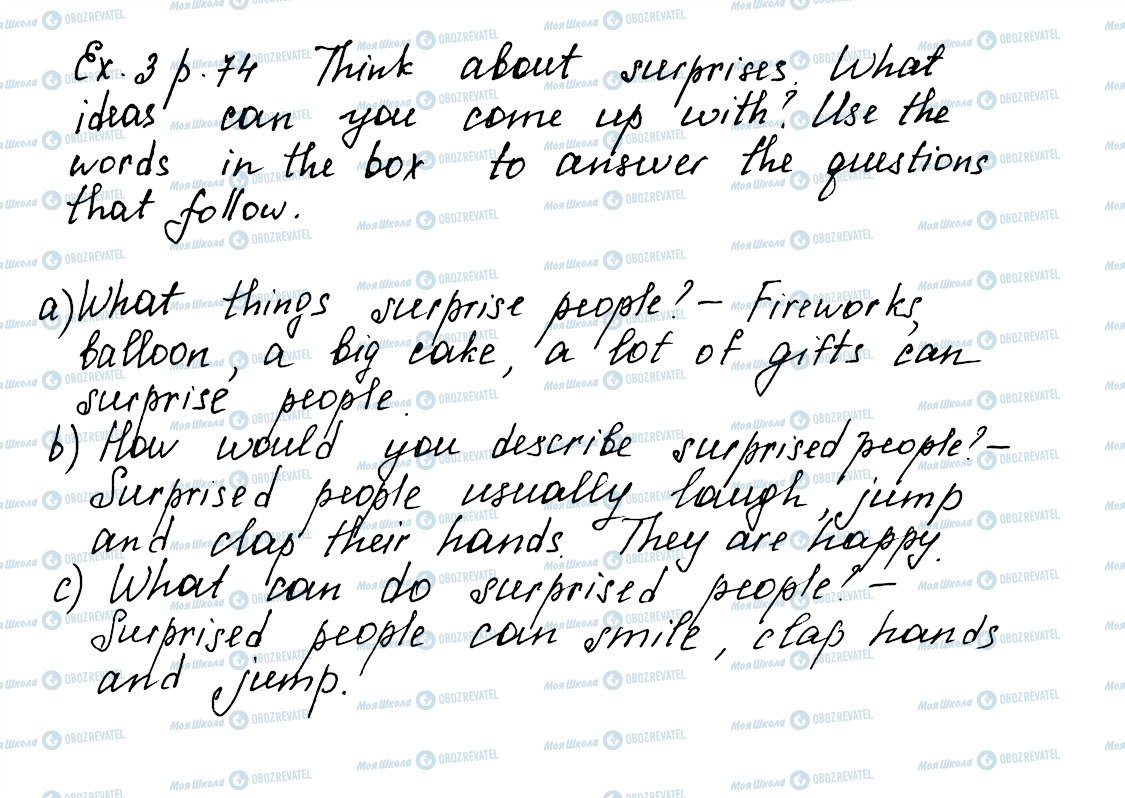 Ex. 3 p. 74 Think about surprises. What
ideas can you come up with? Use the
words in the box to answer the questions
that follow.
a) What things surprise people? – Fireworks,
balloon, a big cake, a lot of gifts can
surprise people.
b) How would you describe surprised people? –
Surprised people usually laugh, jump
and clap their hands. They are happy.
c) What can do surprised people? –
Surprised people can smile, clap hands
and jump.